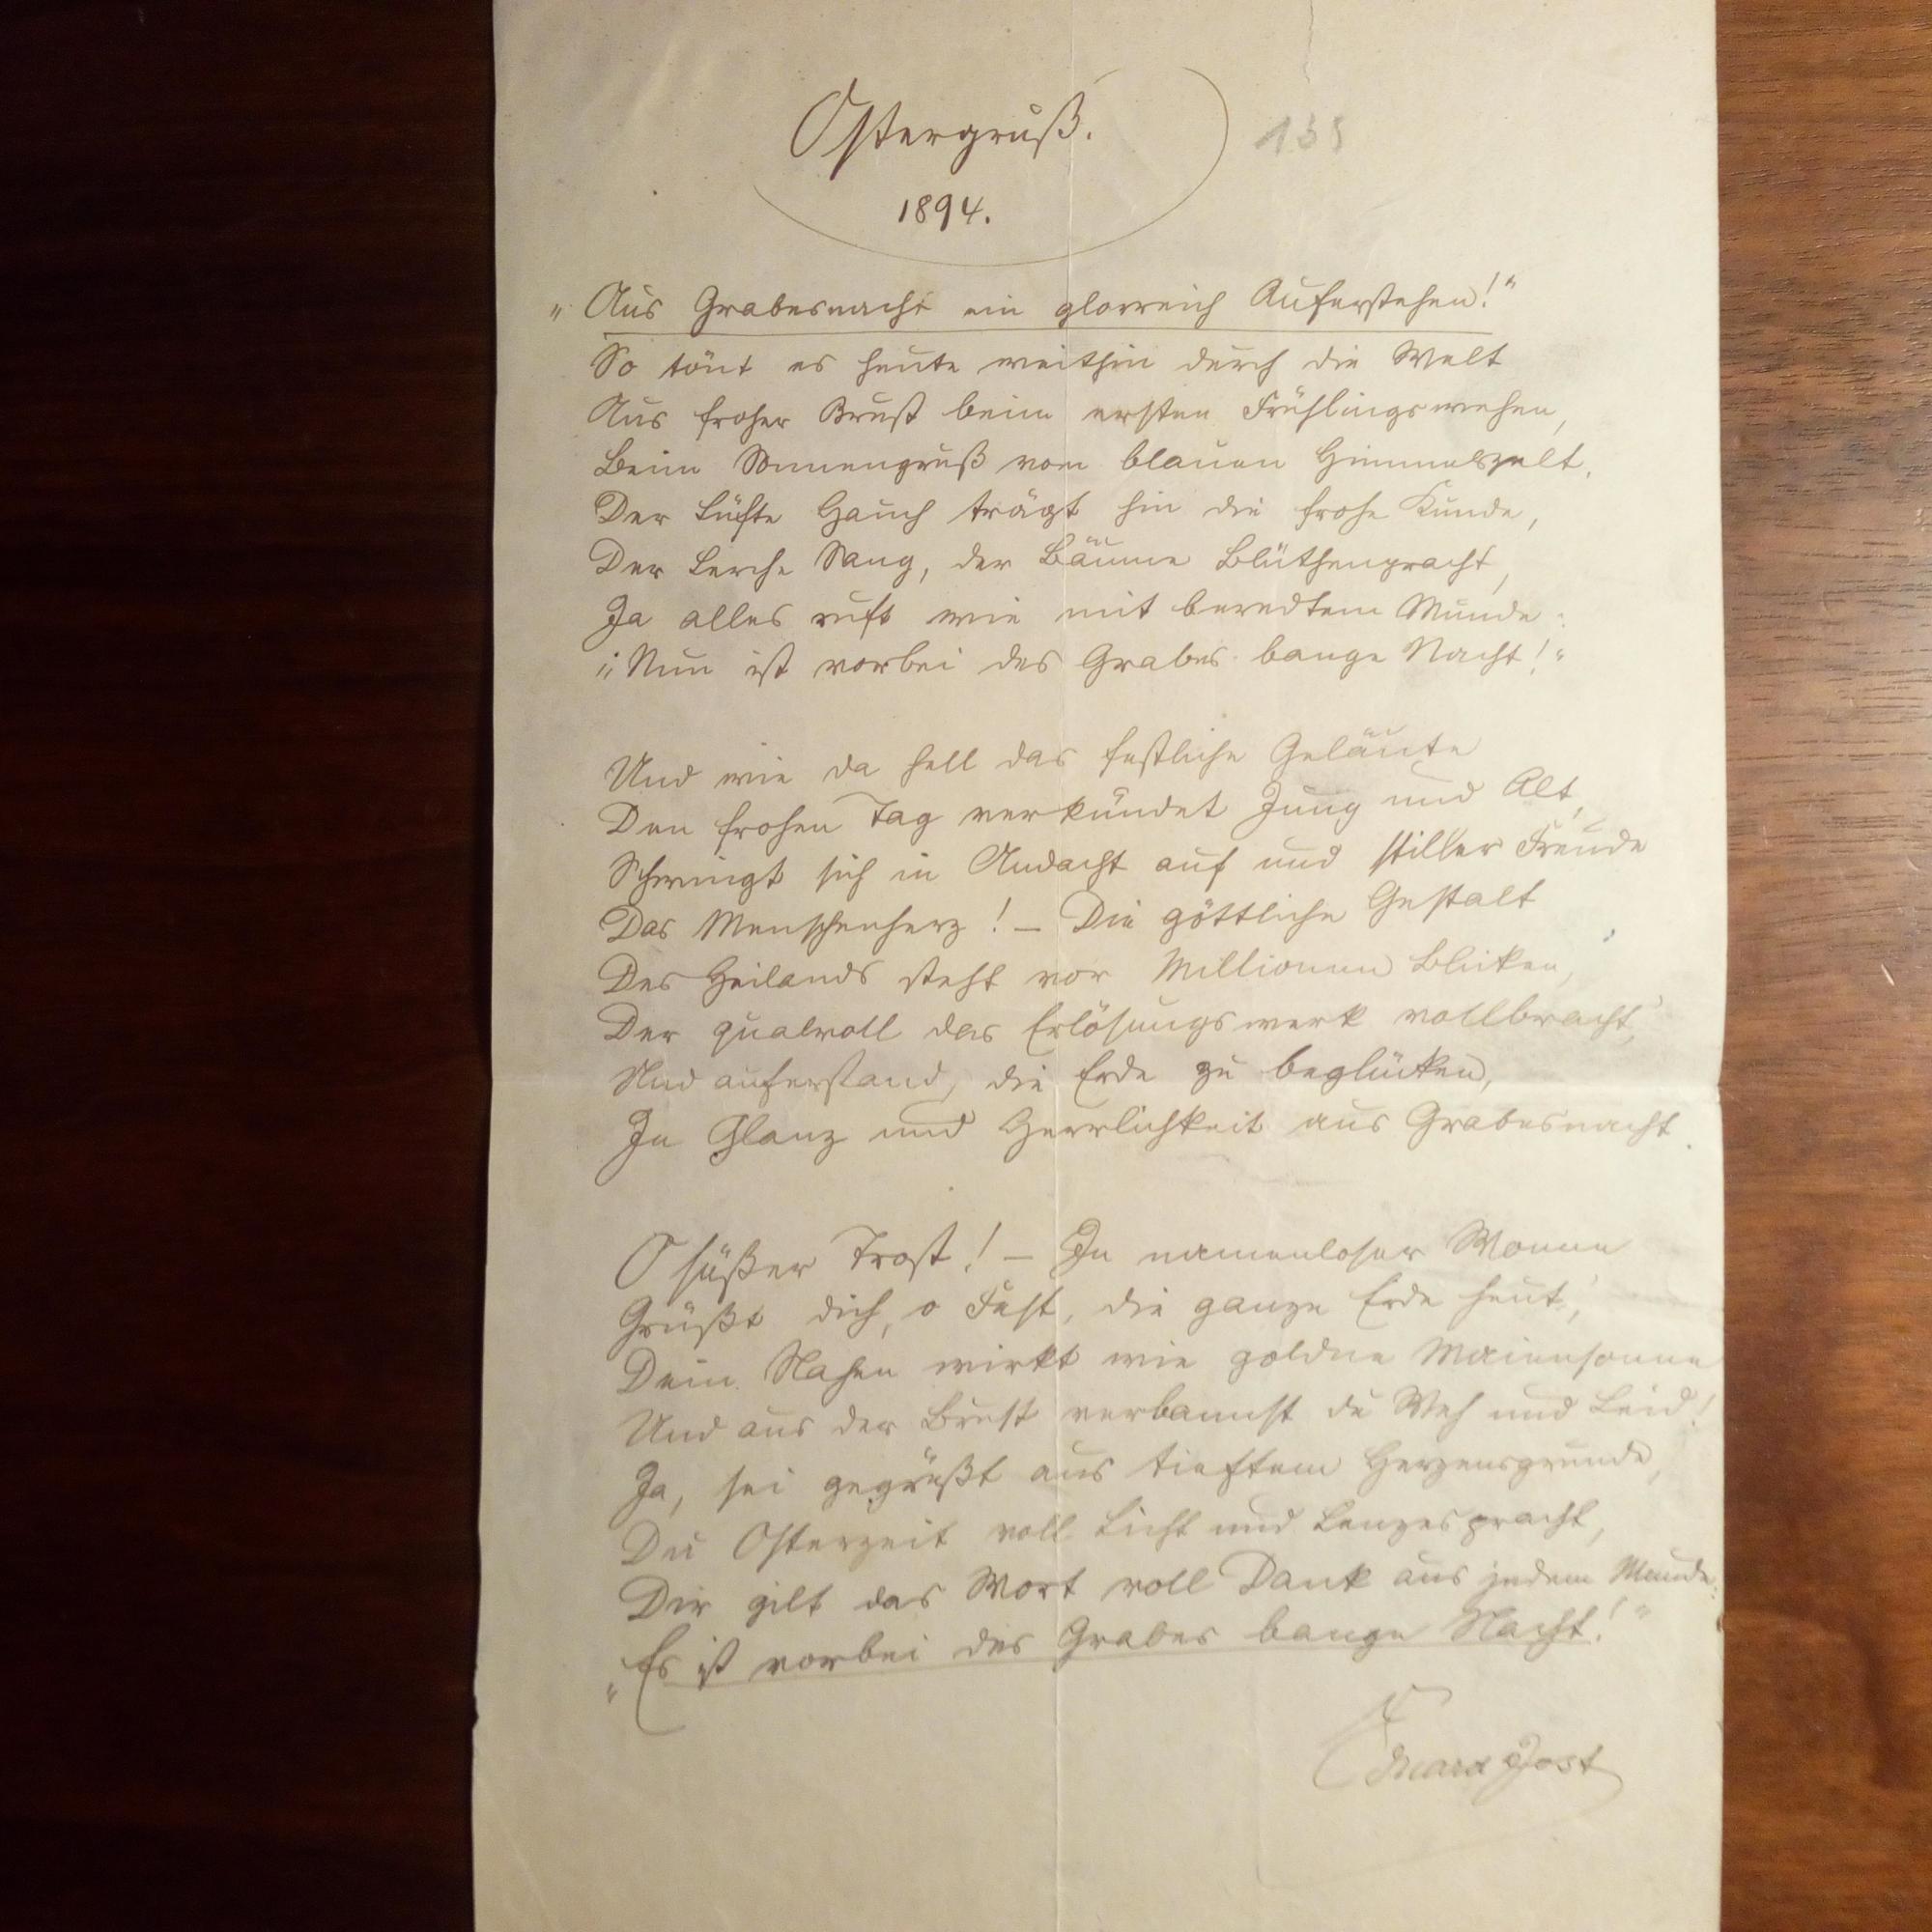 Ostergruß.
135
1894.
„Aus Grabesnacht ein glorreich Auferstehen!“
So tönt es heute weithin durch die Welt
Aus froher Brust beim ersten Frühlingswehen,
Beim Sonnengruß vom blauen Himmelszelt.
Der Lüfte Hauch trägt hin die frohe Kunde,
Der Lerche Sang, der Bäume Blüthenpracht,
Ja alles ruft wie mit beredtem Munde:
„Nun ist vorbei des Grabes bange Nacht!“
Und wie da hell das festliche Geläute
Den frohen Tag verkündet Jung und Alt,
Schwingt sich in Andacht auf und stiller Freude
Das Menschenherz! – Die göttliche Gestalt
Des Heilands steht vor Millionen Blicken,
Der qualvoll das Erlösungswerk vollbracht,
Und auferstand, die Erde zu beglücken,
In Glanz und Herrlichkeit aus Grabesnacht.
O süßer Trost! – In namenloser Wonne
Grüßt dich, o Fest, die ganze Erde heut,
Dein Nahen wirkt wie goldne Maiensonne
Und aus der Brust verbannst du Weh und Leid!
Ja, sei gegrüßt aus tiefstem Herzensgrunde,
Du Osterzeit voll Licht und Lenzespracht,
Dir gilt das Wort voll Dank aus jedem Munde:
„Es ist vorbei des Grabes bange Nacht!“
Eduard Jost